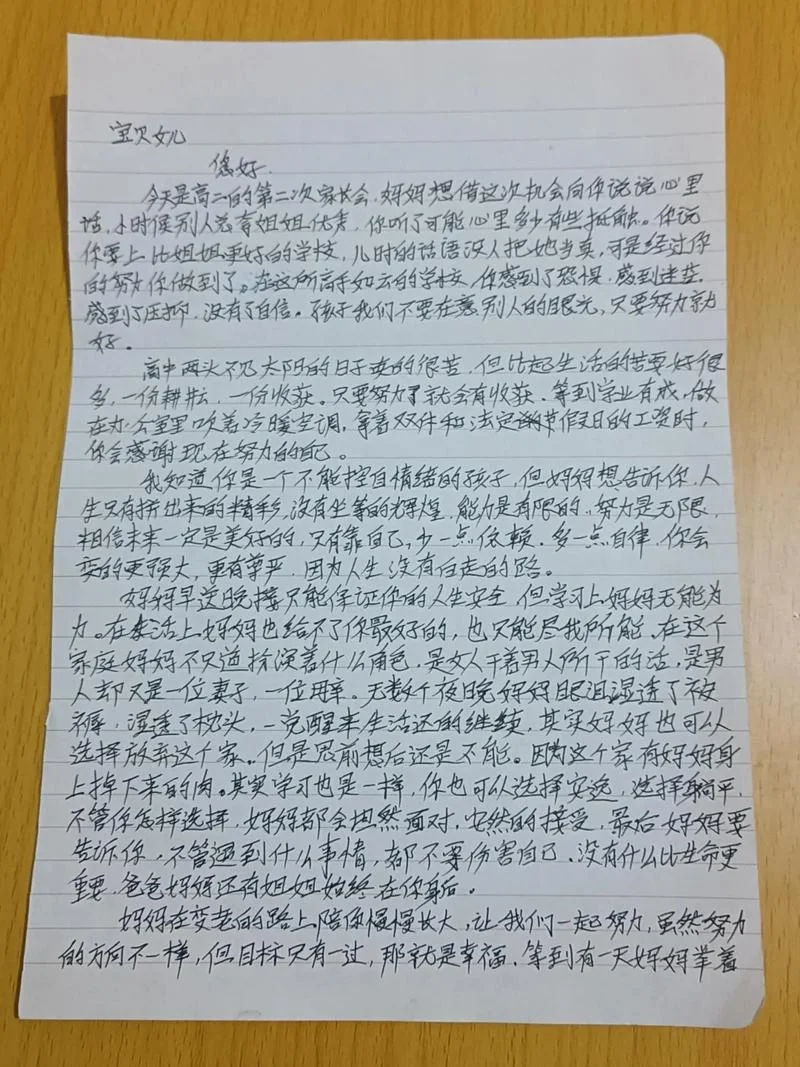 宝贝女儿
您好.
今天是高二的第二次家长会,妈妈想借这次机会向你说说心里
话,小时侯别人总育姐姐优秀,你听了可能心里多少有些抵触。你说
你要上比姐姐更好的学校,儿时的话语没人把她当真,可是经过你
的努力你做到了。在这所高手如云的学校,你感到了恐惧,感到迷茫,
感到了压抑,没有了自信。孩子我们不要在意别人的眼光,只要努力就
好。
高中两头不见太阳的日子真的很苦,但比起生活的苦要好很
多,一份耕耘,一份收获。只要努力了就会有收获,等到学业有成,做
在办公室里吹着冷暖空调,拿着双休和法定节假日的工资时,
你会感谢现在努力的自己。
我知道你是一个不能控自情绪的孩子,但妈妈想告诉你,人
生只有拼出来的精彩,没有坐等的辉煌,能力是有限的,努力是无限,
相信未来一定是美好的,只有靠自己,少一点依赖,多一点自律,你会
变的更强大,更有尊严,因为人生没有白走的路。
妈妈早送晚接只能保证你的人生安全,但学习上妈妈无能为
力。在生活上妈妈也给不了你最好的,也只能尽我所能,在这个
家庭妈妈不只道扮演着什么角色,是女人干着男人所干的活,是男
人却又是一位妻子,一位母亲。无数个夜晚妈妈眼泪湿透了被
褥,湿透了枕头,一觉醒来生活还的继续,其实妈妈也可以
选择放弃这个家,但是思前想后还是不能。因为这个家有妈妈身
上掉下来的肉。其实学习也是一样,你也可以选择安逸,选择躺平,
不管你怎样选择,妈妈都会坦然面对,安然的接受,最后妈妈要
告诉你,不管遇到什么事情,都不要伤害自己,没有什么比生命更
重要,爸爸妈妈还有姐姐始终在你身后。
妈妈在变老的路上陪你慢慢长大,让我们一起努力,虽然努力
的方向不一样,但目标只有一过,那就是幸福,等到有一天妈妈牵着